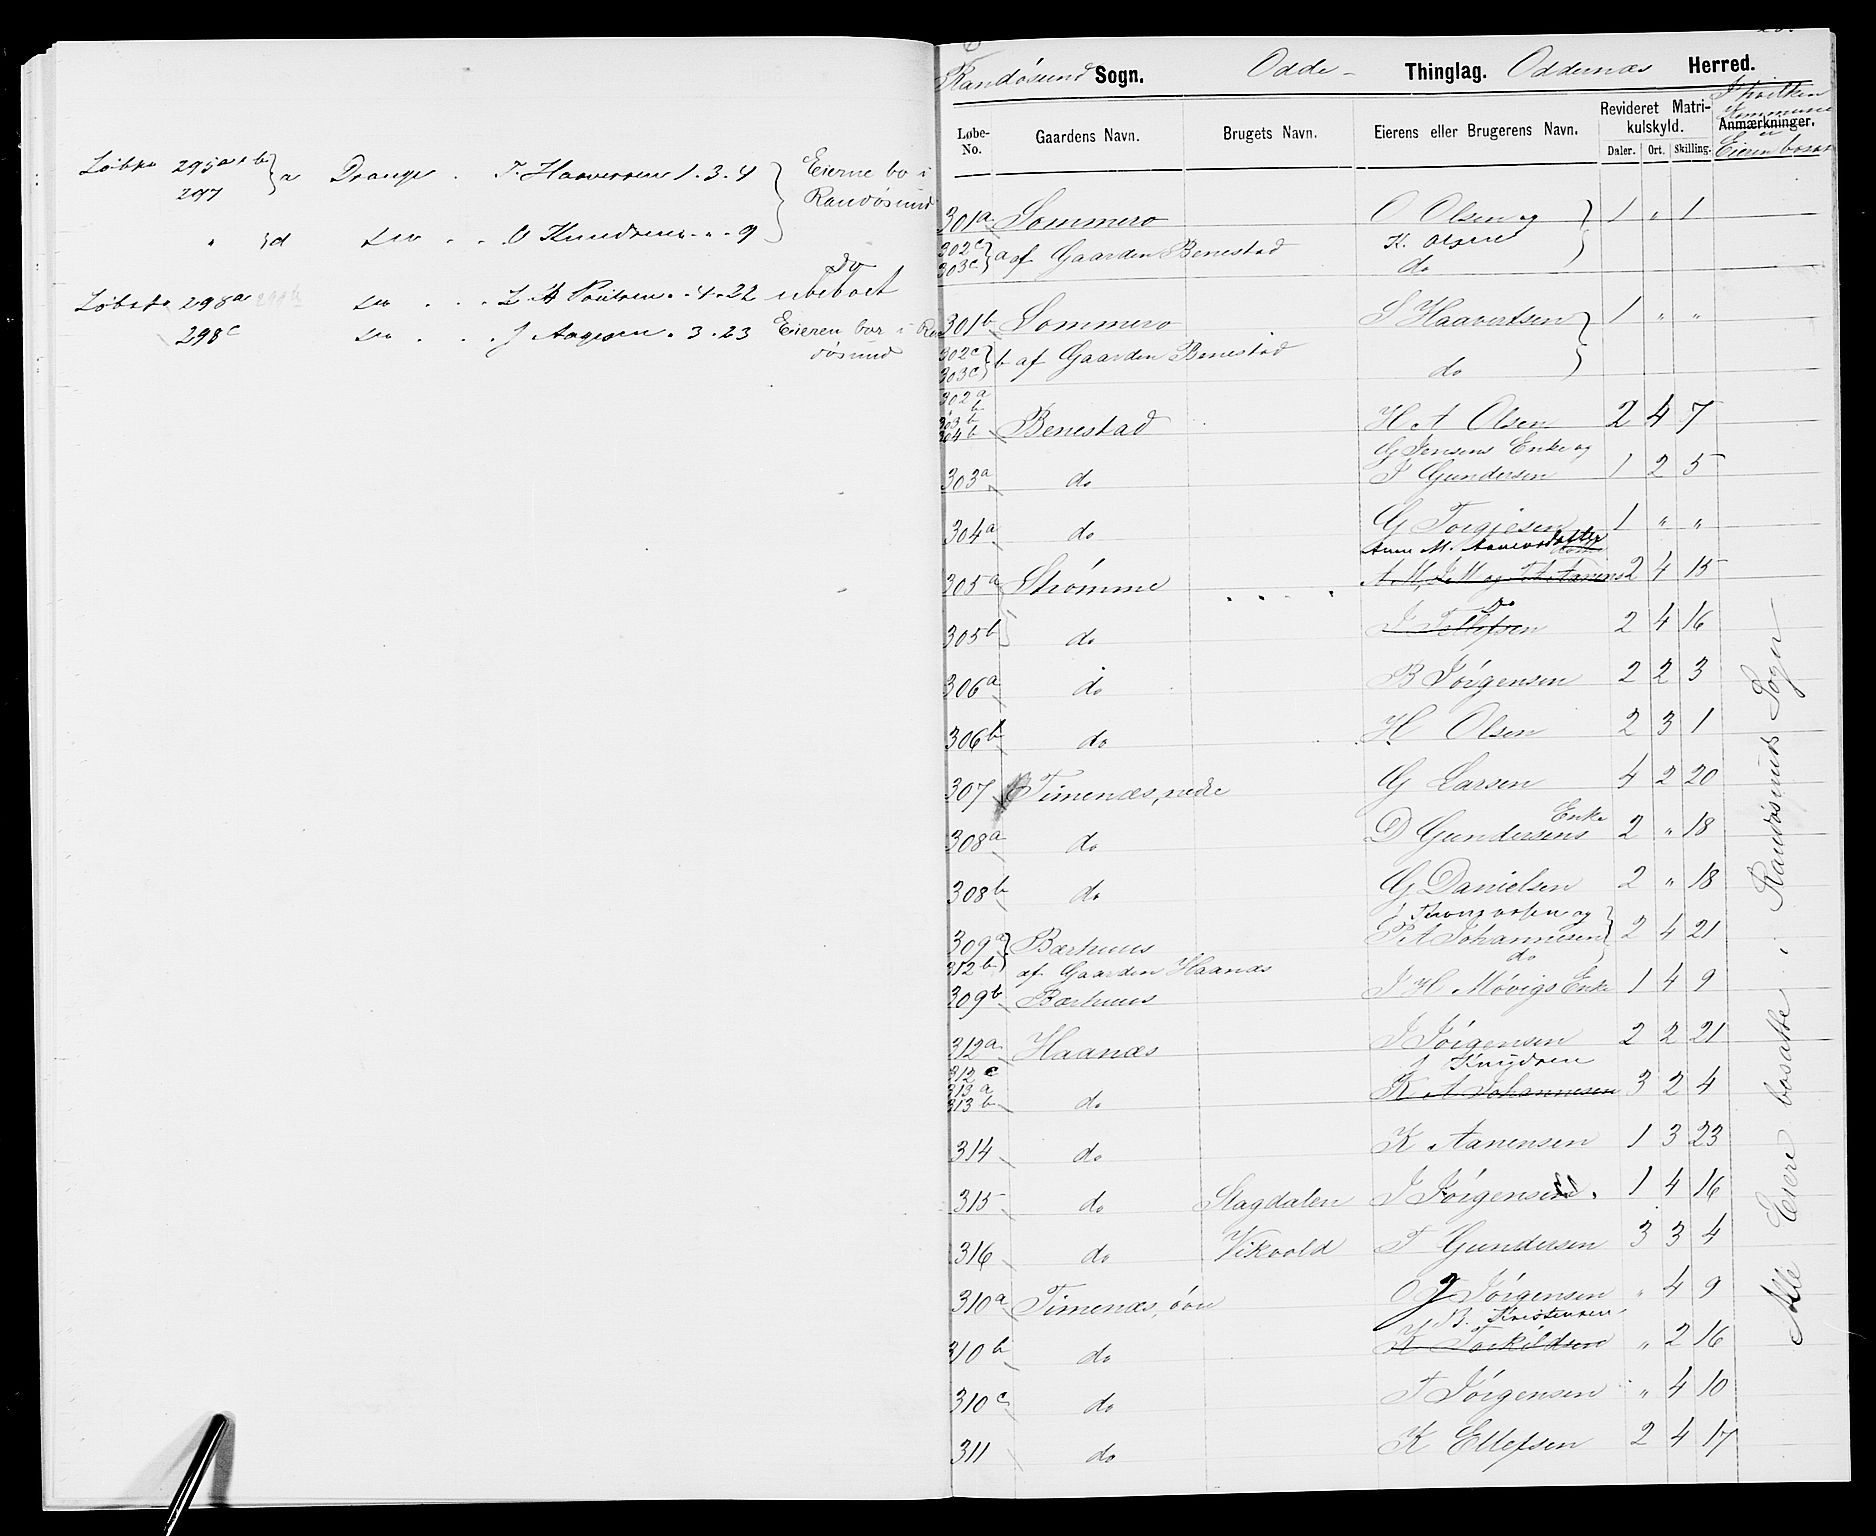 Løbno 295a+b } a Drange . T. Haaversen 1.3.4 } Eierne bo i
297 Randøsund
" d do . . O Knudsen " . " . 9
Do
Løbno 298a 299b do . . . L A Poulsen . . 4 . 22 ubeboet
298c do . . . J Aagesen . 3 . 23 Eieren bor i Ran
døsund
Randøsund Sogn. Odde- Thinglag. Oddernæs Herred.
Løbe-No. Gaardens Navn. Brugets Navn. Eierens eller Brugerens Navn. Revideret Matrikulskyld. Daler. Ort. Skilling. Anmærkninger. I hvilken Commune er Eieren bosat
301a Sommero O Olsen og } 1 " 1
302c 303c } a af Gaarden Benestad K. Olsen
do
301b Sommero S Haavertsen } 1 " "
302c 303c } b af Gaarden Benestad
do
302a b
303b 304b Benestad H A Olsen 2 4 7
G Jensens Enke og
303a do J Gundersen 1 2 5
304a do G Torgjesen 1 " "
Anne M. Aanensdatter
305a Strømme A M, J M og T A Aanens 2 4 15
Do
305b do J Tellefsen 2 4 16
306a do B Jørgensen 2 2 3
306b do H Olsen 2 3 1
307 Timenæs, nedre G Larsen 4 2 20
308a do D Gundersens Enke 2 " 18
308b do G Danielsen 2 " 18
J Thorsvaldsen og
309a } Bærhuus P A Johannesen } 2 4 21
312b af Gaarden Haanæs do
309b Bærhuus J H Møvigs Enke 1 4 9
312a Haanæs J Jørgensen 2 2 21
J Knudsen
312c 313a 313b do K A Johannesen 3 2 4
314 do K Aanensen 1 3 23
315 do Stagdalen J Jørgensen. 1 4 16
316 do Vikvold T Gundersen 3 3 4
310a Timenæs, øvre O J Jørgensen " 4 9
B. Kristensen
310b do K Torkildsen " 2 16
310c do T Jørgensen " 4 10
311 do K Ellefsen 2 4 17
Alle Eiere bosatte i Randøsunds Sogn